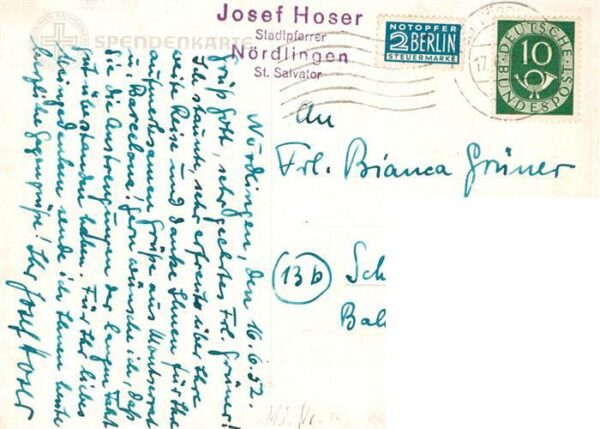 SPENDENKARTE
Josef Hoser
Stadtpfarrer
Nördlingen
St. Salvator
NOTOPFER
2 BERLIN
STEUERMARKE
DEUTSCHE
10
BUNDESPOST
17.
An
Frl. Bianca Grüner
13b
Sch
Bah
Nördlingen, den 16.6.52.
Grüß Gott, sehr geehrtes Frl. Grüner!
Ich staunte, sehr erfreits über Ihre
weite Reise und danke Ihnen für die
aufmerksamen Grüße aus Montserrat
u. Barcelona! Gern wünsche ich, daß
Sie die Anstrengungen der langen Fahrt
gut überstanden haben. Für Ihr liebes
Meingedenken sende ich Ihnen heute
herzliche Gegengrüße! Ihr Josef Hoser